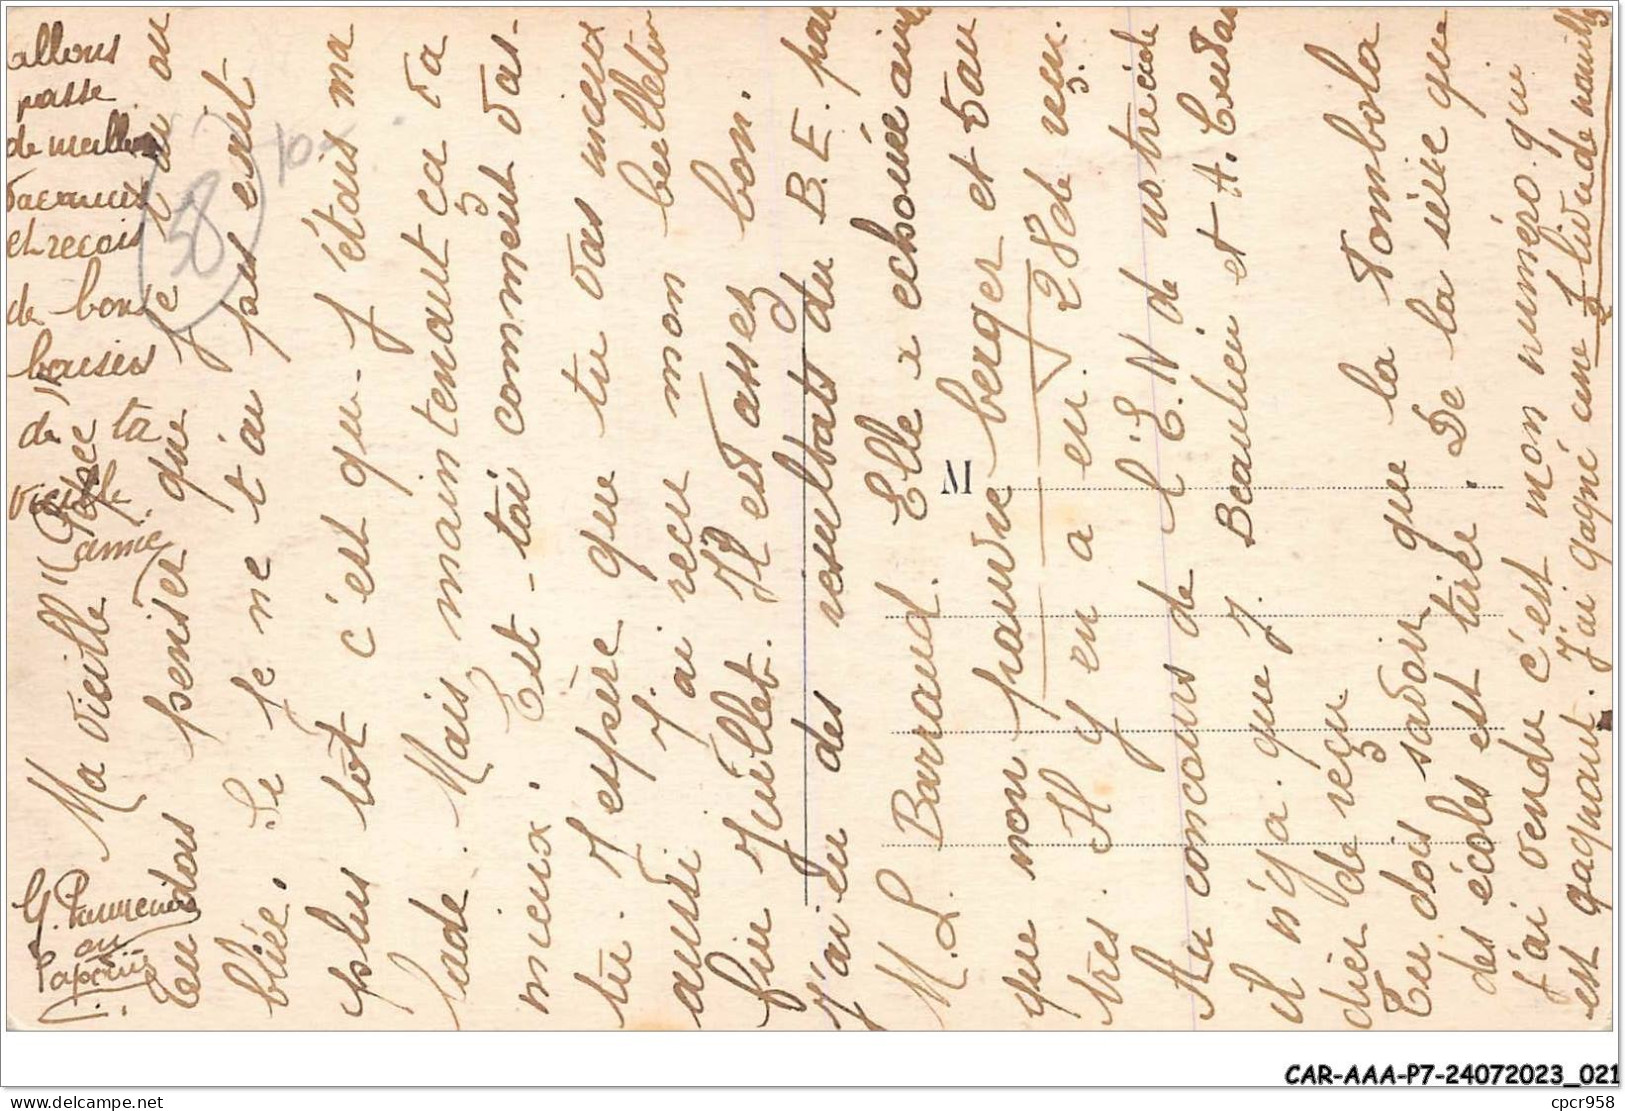 Ma vieille Gosse
Tu dois penser que je t'ai ou
bliée. Si je ne t'ai pas écrit
plus tôt c'est que j'étais ma
lade. Mais maintenant ça va
mieux. Est-toi comment vas-
tu. J'espère que tu vas mieux
aussi. J'ai reçu mon bulletin
fin Juillet. Il est assez bon.
J'ai eu des résultats du B.E. par
M. L. Barraud. Elle a echouée ainsi
que mon pauvre berger et d'au
tres. Il y en a eu 28 de reçu.
Au concours de l'E.N de notre école
il n'y a que J. Beaulieu et A. Cuda
dier de reçu
Tu dois savoir que la Tombola
des écoles est tirée. De la série que
j'ai vendu c'est mon numéro qui
est gagnant. J'ai gagné une livre de nouilles
allons
passe
de meilleures
vacances
et recois
de bons
baisers
de ta
vieille
amie
G.
ou
58
10-
M
CAR-AAA-P7-24072023_021
delcampe.net
cpcr958